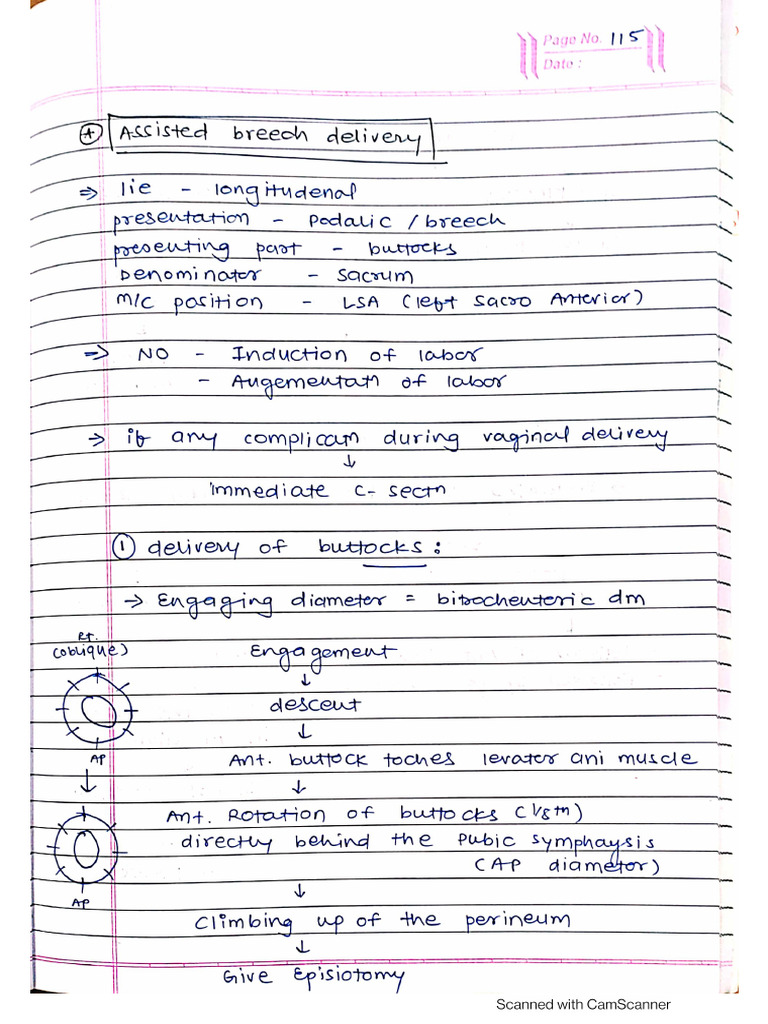 Page No. 115
Date :
Assisted breech delivery
⇒ lie - longitudenal
presentation - Podalic / breech
presenting part - buttocks
Denominator - Sacrum
M/C position - LSA (left Sacro Anterior)
⇒ NO - Induction of labor
- Augementatn of labor
→ if any complicatn during vaginal delivery
↓
immediate C-sectn
① delivery of buttocks :
→ Engaging diameter = bitrochenteric dm
Rt.
(oblique)
Engagement
↓
descent
↓
AP
Ant. buttock toches levater ani muscle
↓
Ant. Rotation of buttocks (1/8th)
directly behind the Pubic symphaysis
(AP diameter)
AP
↓
Climbing up of the perineum
↓
Give Episiotomy
Scanned with CamScanner